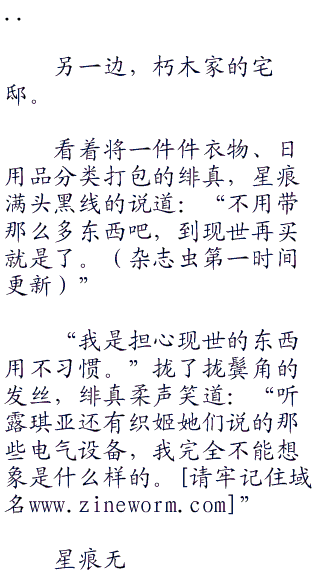 ..
另一边，朽木家的宅
邸。
看着将一件件衣物、日
用品分类打包的绯真，星痕
满头黑线的说道：“不用带
那么多东西吧，到现世再买
就是了。（杂志虫第一时间
更新）”
“我是担心现世的东西
用不习惯。”拢了拢鬓角的
发丝，绯真柔声笑道：“听
露琪亚还有织姬她们说的那
些电气设备，我完全不能想
象是什么样的。[请牢记住域
名www.zineworm.com]”
星痕无